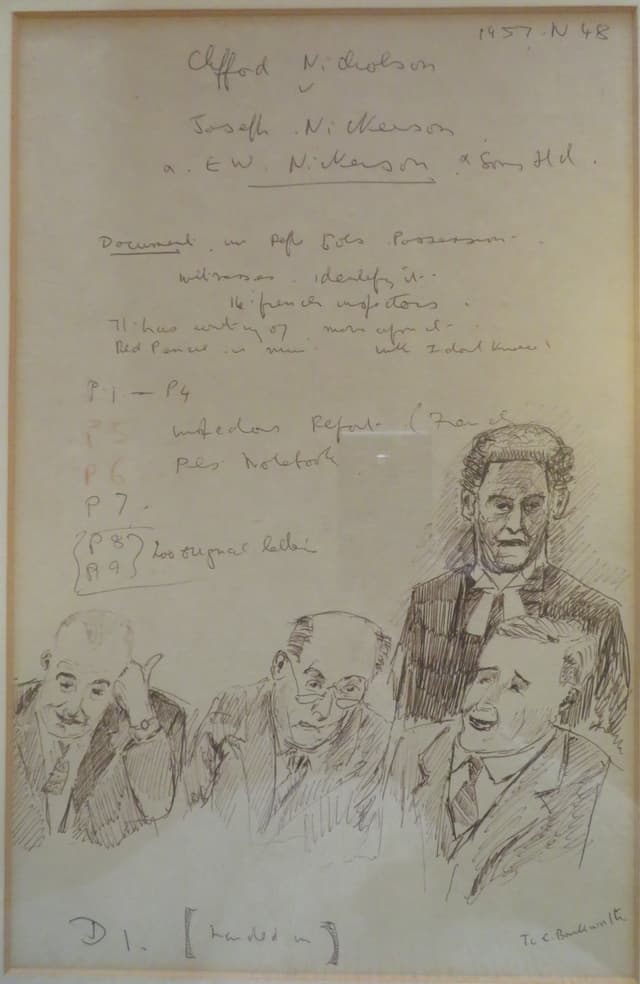 1957. N 48
Clifford Nicholson
v
Joseph Nickerson
& E W. Nickerson & Sons Ltd.
Document in Possession
witnesses identify it.
16 french inspectors
It has writing of upon it
Red Pencil is mine I don't know!
P.1 — P4
P5 Inspectors Report (French
P6 Notebook
P7.
P8
P9 Two original letters
D1. [handed in]